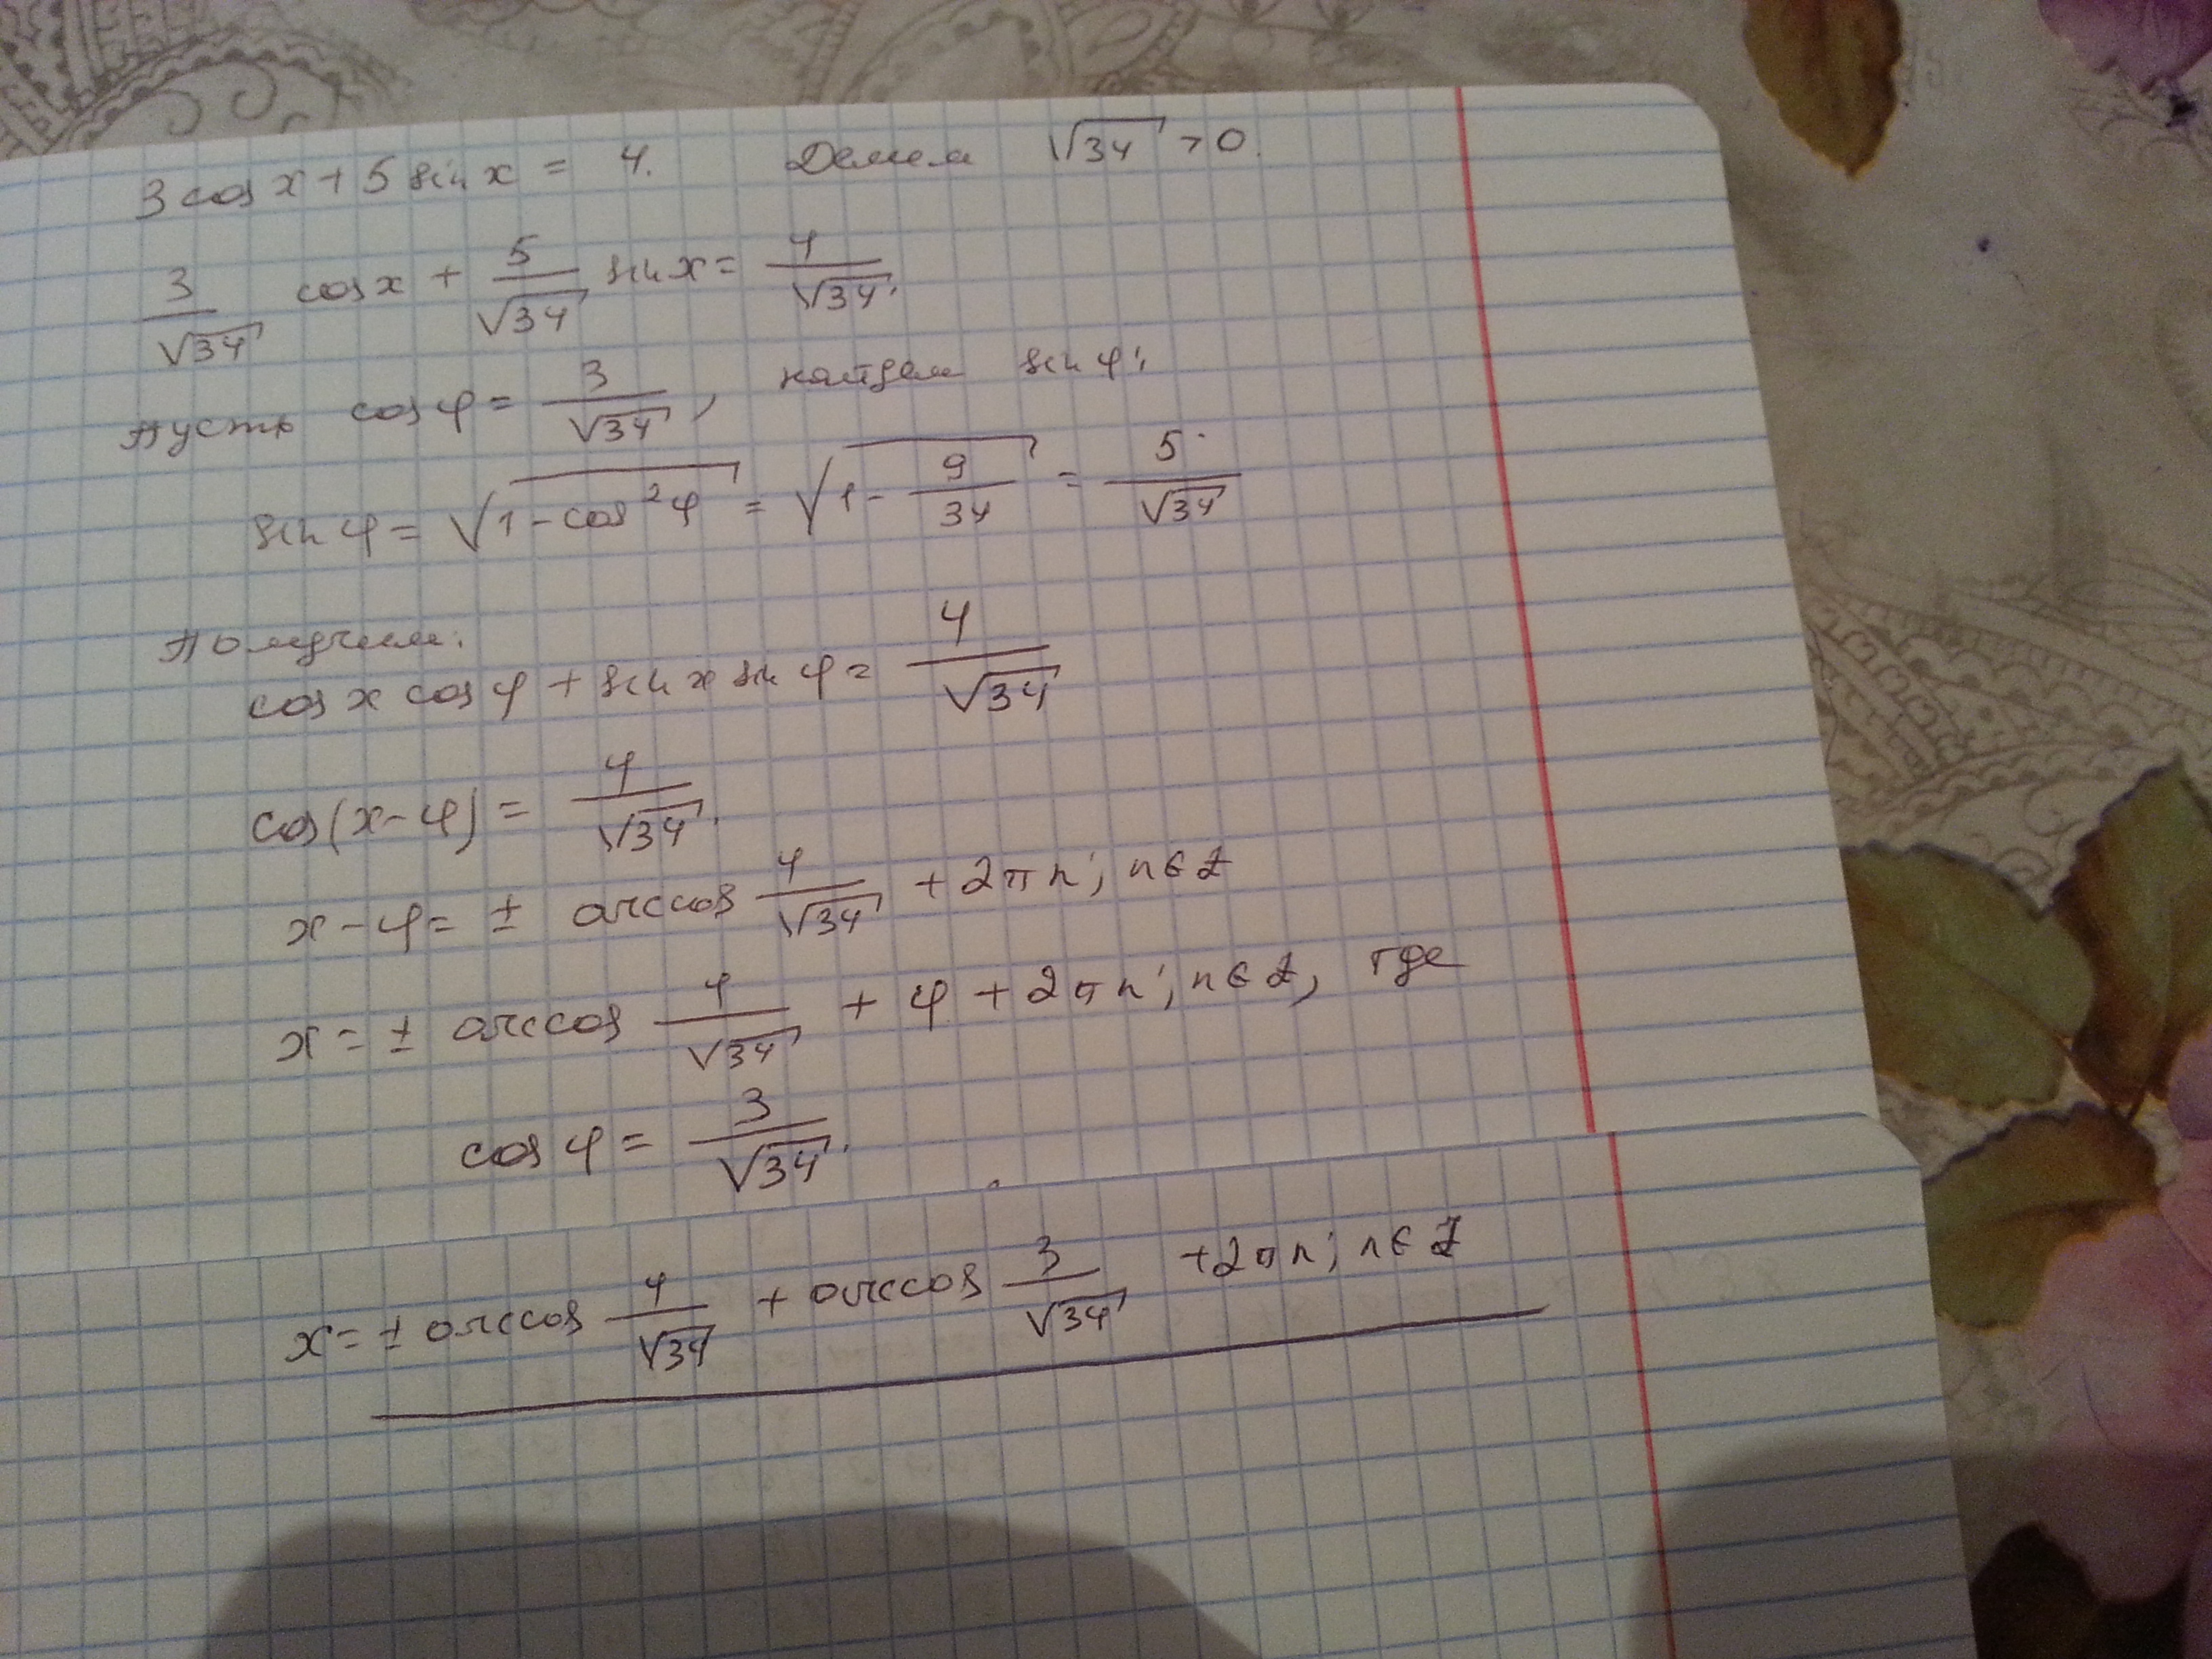 3 cos x + 5 sin x = 4. Делим √34 > 0.
3/√34 cos x + 5/√34 sin x = 4/√34.
Пусть cos φ = 3/√34, найдем sin φ:
sin φ = √(1 - cos²φ) = √(1 - 9/34) = 5/√34
Получим:
cos x cos φ + sin x sin φ = 4/√34
cos(x - φ) = 4/√34.
x - φ = ± arccos 4/√34 + 2πn; n∈Z
x = ± arccos 4/√34 + φ + 2πn; n∈Z, где
cos φ = 3/√34.
x = ± arccos 4/√34 + arccos 3/√34 + 2πn; n∈Z